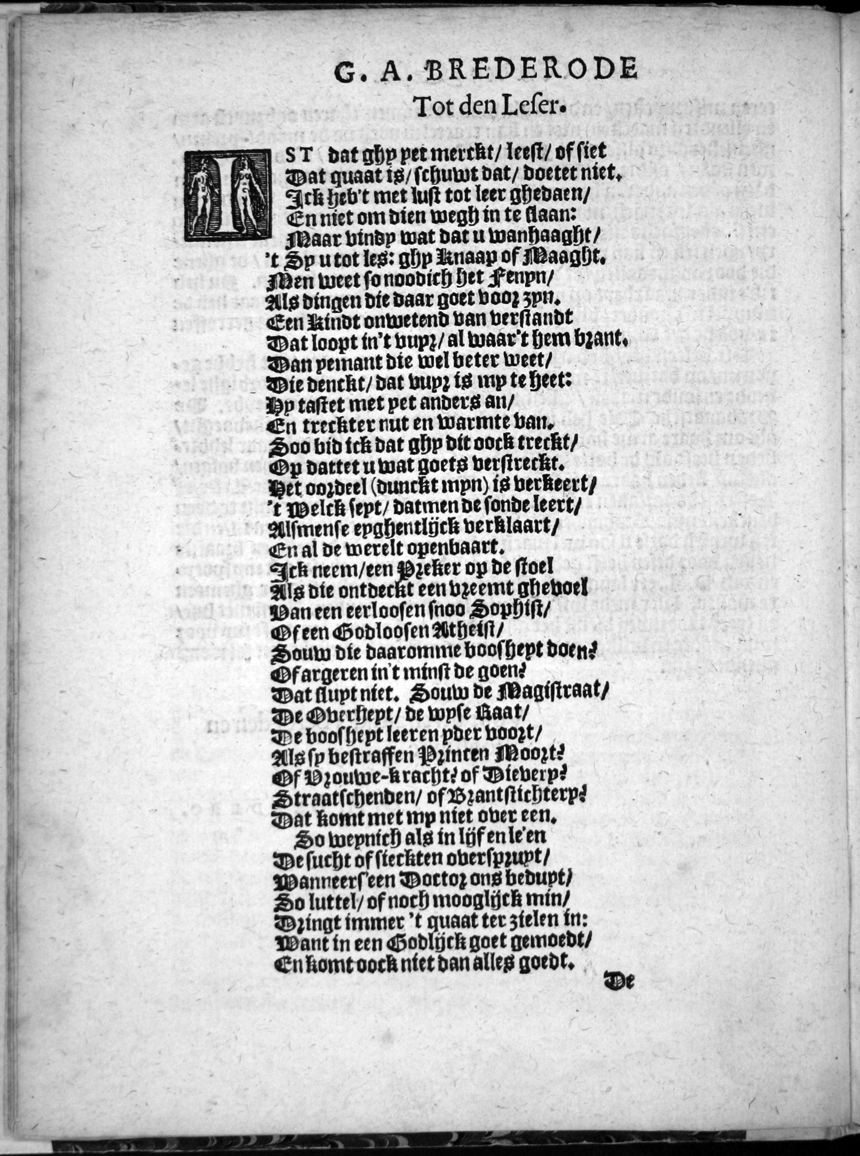 G. A. BREDERODE
Tot den Leser.
IST dat ghy yet merckt/ leest/ of siet
Dat quaat is/ schuwt dat/ doetet niet.
Ick heb't met lust tot leer ghedaen/
En niet om dien wegh in te slaan:
Maar vindy wat dat u wanhaaght/
't Sy u tot les: ghy Knaap of Maaght.
Men weet so noodich het Fenyn/
Als dingen die daar goet voor zyn.
Een Kindt onwetend van verstandt
Dat loopt in't vuyr/ al waar't hem brant.
Dan yemant die wel beter weet/
Die denckt/ dat vuyr is my te heet:
Hy tastet met yet anders an/
En treckter nut en warmte van.
Soo bid ick dat ghy dit oock treckt/
Op dattet u wat goets verstreckt.
Het oordeel (dunckt myn) is verkeert/
't Welck seyt/ datmen de sonde leert/
Alsmense eyghentlijck verklaart/
En al de werelt openbaart.
Ick neem/een Preker op de stoel
Als die ontdeckt een vreemt ghevoel
Van een eerloosen snoo Sophist/
Of een Godloosen Atheist/
Souw die daaromme boosheyt doen?
Of argeren in't minst de goen?
Dat sluyt niet. Souw de Magistraat/
De Overheyt/ de wyse Raat/
De boosheyt leeren yder voort/
Als sy bestraffen Printen Moort?
Of Vrouwe-kracht? of Dievery?
Straatschenden/ of Brantstichtery?
Dat komt met my niet over een.
So weynich als in lijf en le'en
De sucht of sieckten overspruyt/
Wanneers'een Doctor ons beduyt/
So luttel/ of noch mooglijck min/
Dringt immer 't quaat ter zielen in:
Want in een Godlijck goet gemoedt/
En komt oock niet dan alles goedt.
De